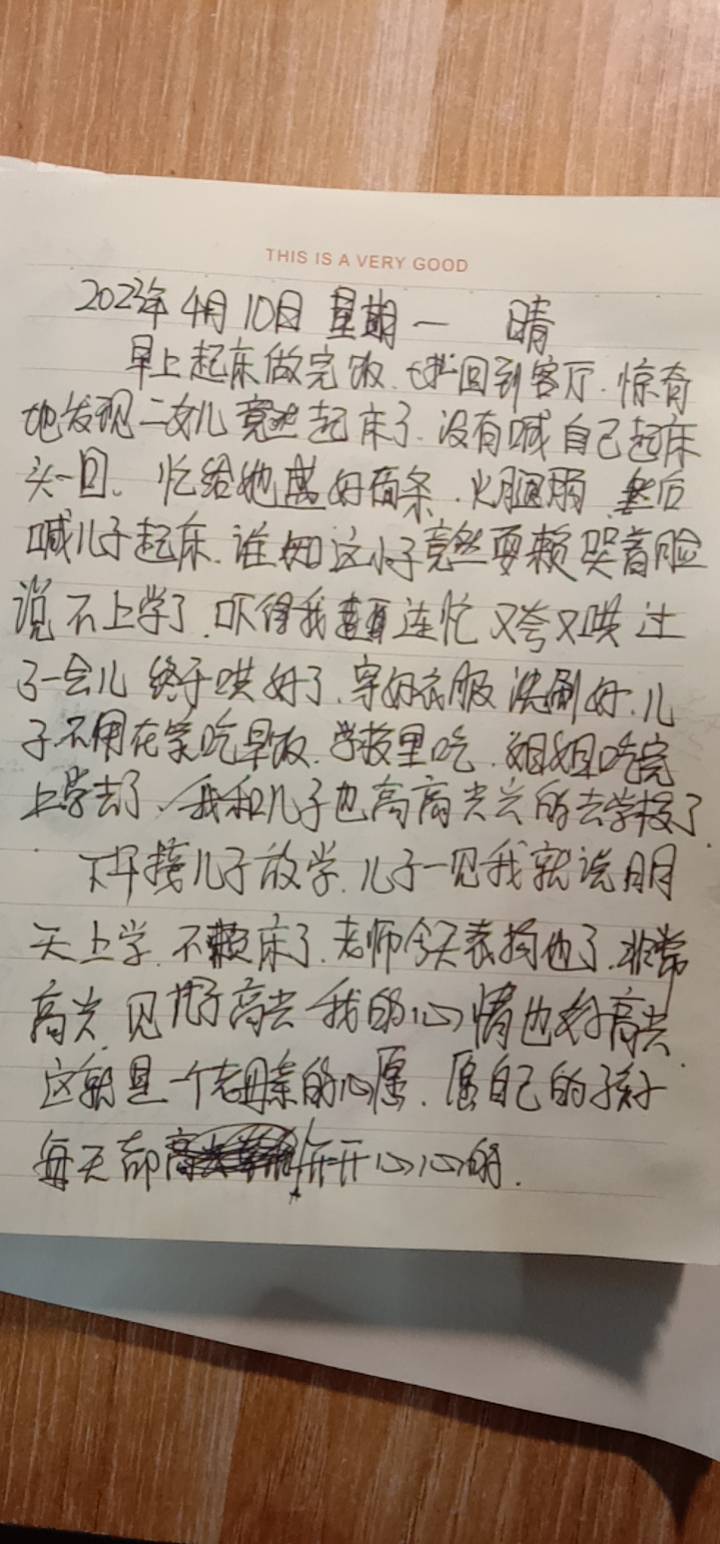 THIS IS A VERY GOOD
2023年4月10日 星期一 晴
早上起床做完饭、我回到客厅.惊奇
地发现二女儿竟然起床了.没有喊自己起床
头一回。忙给她盛好面条.火腿肠.然后
喊儿子起床.谁知这小子竟然耍赖哭着脸
说不上学了.吓得我连忙又夸又哄过
了一会儿终于哄好了.穿好衣服洗刷好.儿
子不用在家吃早饭.学校里吃.姐姐吃完
上学去了.我和儿子也高高兴兴的去学校了.
下午接儿子放学.儿子一见我就说明
天上学.不赖床了.老师今天表扬他了.非常
高兴.见儿子高兴我的心情也好高兴.
这就是一个老母亲的心愿.愿自己的孩子
每天都开开心心的.